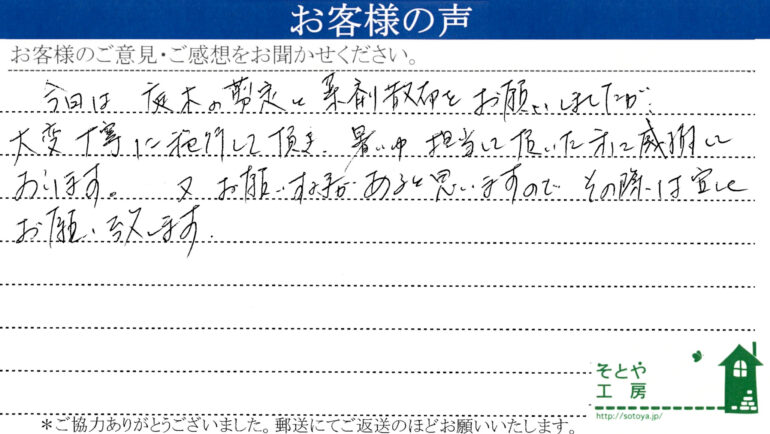 お客様の声
お客様のご意見・ご感想をお聞かせください。
今回は 庭木の剪定と薬剤散布をお願いしましたが、
大変丁寧に施行して頂き、暑い中 担当して頂いた方に感謝して
おります。 又 お願いする事があると思いますので その際は宜しく
お願い致します.
そとや
工房
http://sotoya.jp/
＊ご協力ありがとうございました。郵送にてご返送のほどお願いいたします。